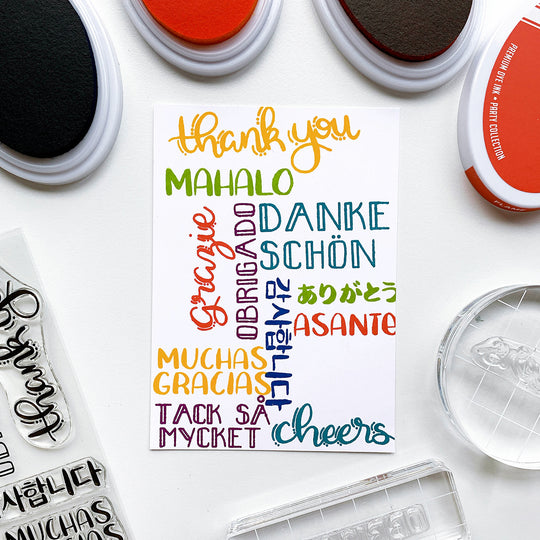 PREMIUM DYE INK • PARTY COLLECTION
thank you
MAHALO
grazie
OBRIGADO
DANKE
SCHÖN
감사합니다
ありがとう
ASANTE
MUCHAS
GRACIAS
TACK SÅ
MYCKET
cheers
thank y
사합니다
MUCHAS
GRACIAS